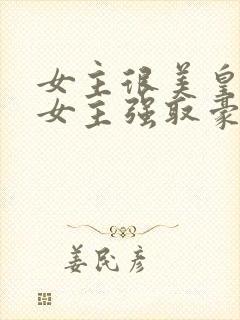 女主很美皇
女主强取豪
姜民彦